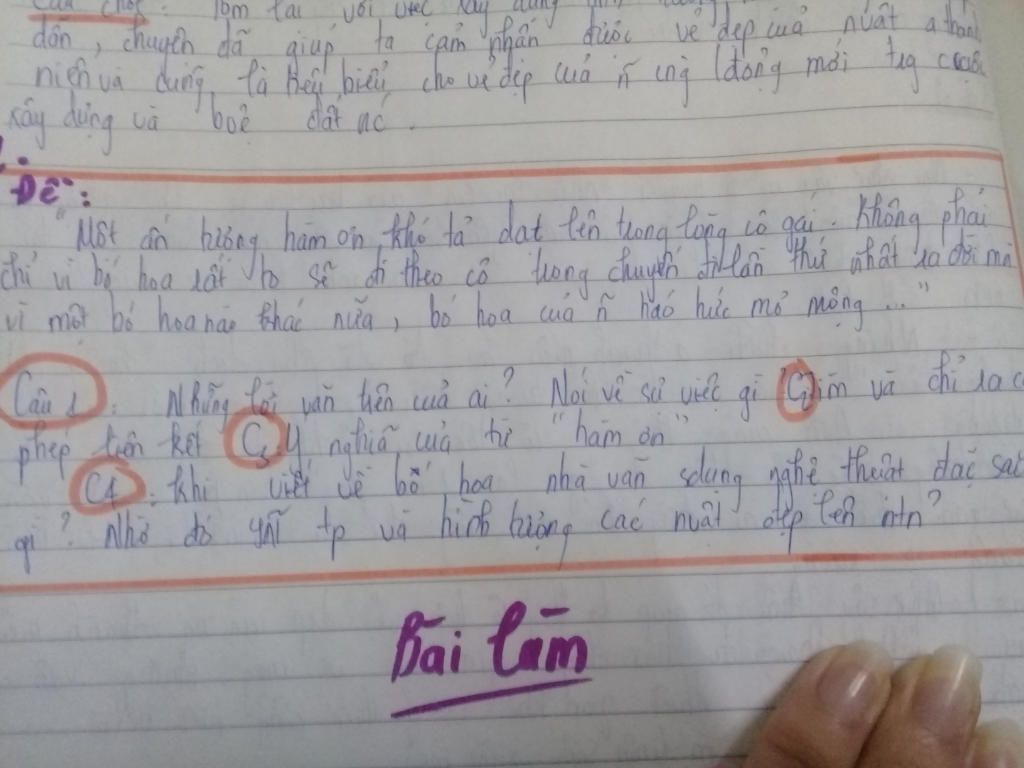 câu chốt. Tóm lại với việc xây dựng
dẫn, chuyện đã giúp ta cảm nhận được vẻ đẹp của nvật a thanh
niên và cũng là tiêu biểu cho vẻ đẹp của ~n ng lđộng mới tzg cuộc
xây dựng và bvệ đất nc.
Đề:
"Một ấn tượng hàm ơn khó tả dạt lên trong lòng cô gái. Không phải
chỉ vì bó hoa rất to sẽ đi theo cô trong chuyến đi lần thứ nhất ra đời mà
vì một bó hoa nào khác nữa, bó hoa của ~n háo hức mơ mộng..."
Câu 1: Những lời văn trên của ai? Nói về sự việc gì C2 Tìm và chỉ ra
phép liên kết C3 Ý nghĩa của từ "hàm ơn"
C4: Khi viết về bó hoa nhà văn sdụng nghệ thuật đặc sắc
gì? Nhờ đó tp và hình tượng các nvật đẹp lên ntn?
Bài làm